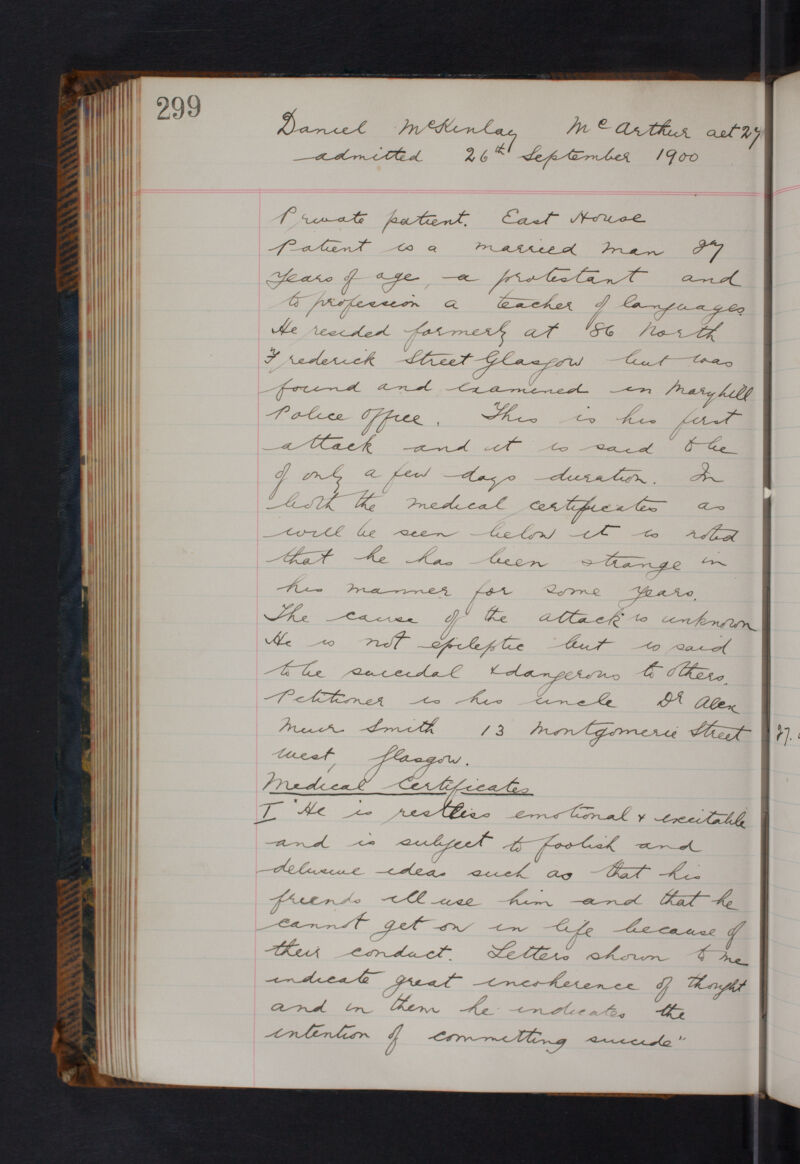 299
Daniel McKinlay McArthur aet 27
admitted 26th September 1900
Private patient. East House
Patient is a married man 27
years of age, a protestant and
to profession a teacher of languages.
He resided formerly at 86 North
Frederick Street Glasgow but was
found and examined in Maryhill
Police Office. This is his first
attack and it is said to be
of only a few days duration. In
both the medical certificates as
will be seen below it is noted
that he has been strange in
his manner for some years.
The cause of the attack is unknown
He is not epileptic but is said
to be suicidal & dangerous to others.
Petitioner is his uncle Dr Alex
Muir Smith 13 Montgomerie Street
West, Glasgow.
Medical Certificates
I "He is restless emotional & excitable
and is subject to foolish and
delusive ideas such as that his
friends ill use him and that he
cannot get on in life because of
their conduct. Letters shown to me
indicate great incoherence of thought
and in them he indicates the
intention of committing suicide"
27.